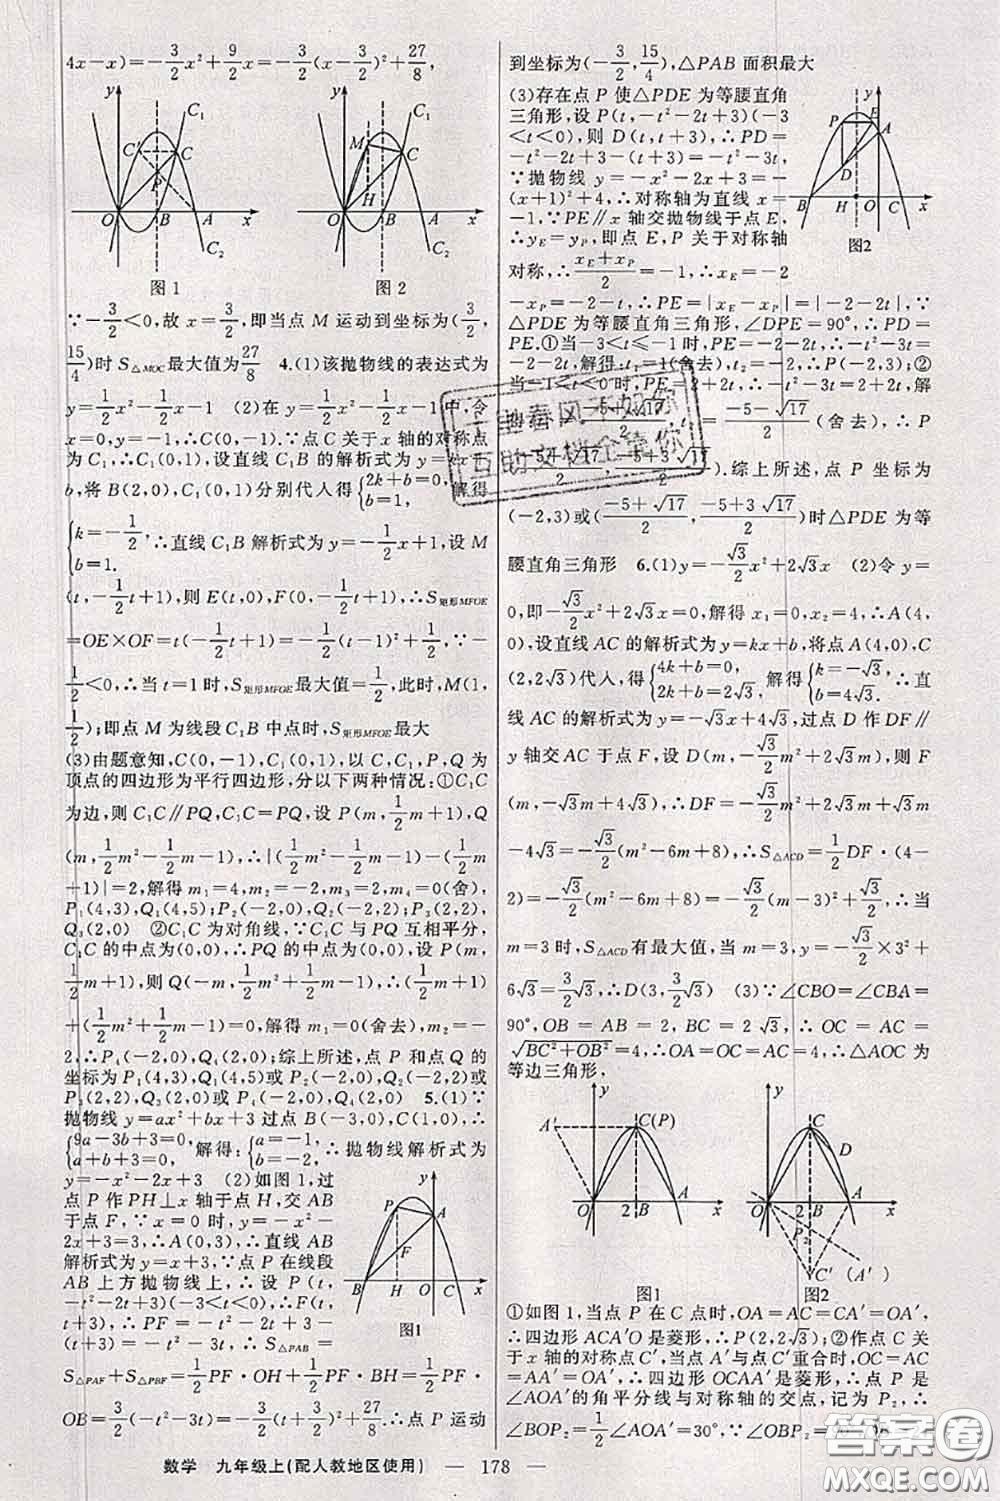 4x-x)=-3/2x²+9/2x=-3/2(x-3/2)²+27/8,
y C₁ C' C P O B A x C₂
图1
y C₁ M C O H B A x C₂
图2
∵-3/2<0,故 x=3/2,即当点 M 运动到坐标为(3/2,
15/4)时 S△MOC最大值为27/8 4.(1)该抛物线的表达式为
y=1/2x²-1/2x-1 (2)在 y=1/2x²-1/2x-1中,令
x=0,y=-1,∴C(0,-1).∵点 C 关于 x 轴的对称点
为 C₁,∴C₁(0,1),设直线 C₁B 的解析式为 y=kx+
b,将 B(2,0),C₁(0,1)分别代人得{2k+b=0, b=1, 解得
{k=-1/2, b=1. ∴直线 C₁B 解析式为 y=-1/2x+1,设 M
(t,-1/2t+1),则 E(t,0),F(0,-1/2t+1),∴S矩形MFOE
=OE×OF=t(-1/2t+1)=-1/2(t-1)²+1/2,∵-
1/2<0,∴当 t=1 时,S矩形MFOE最大值=1/2,此时,M(1,
1/2);即点 M 为线段 C₁B 中点时,S矩形MFOE最大
(3)由题意知,C(0,-1),C₁(0,1),以 C,C₁,P,Q 为
顶点的四边形为平行四边形,分以下两种情况:①C₁C
为边,则 C₁C∥PQ,C₁C=PQ,设 P(m,1/2m+1),Q
(m,1/2m²-1/2m-1),∴|(1/2m²-1/2m-1)-(1/2m
+1)|=2,解得 m₁=4,m₂=-2,m₃=2,m₄=0(舍),
P₁(4,3),Q₁(4,5);P₂(-2,0),Q₂(-2,2);P₃(2,2),
Q₃(2,0) ②C₁C 为对角线,∵C₁C 与 PQ 互相平分,
C₁C 的中点为(0,0),∴PQ 的中点为(0,0),设 P(m,
1/2m+1),则 Q(-m,1/2m²+1/2m-1),∴(1/2m+1)
+(1/2m²+1/2m-1)=0,解得 m₁=0(舍去),m₂=-
2,∴P₄(-2,0),Q₄(2,0);综上所述,点 P 和点 Q 的
坐标为 P₁(4,3),Q₁(4,5)或 P₂(-2,0),Q₂(-2,2)或
P₃(2,2),Q₃(2,0)或 P₄(-2,0),Q₄(2,0) 5.(1)∵
抛物线 y=ax²+bx+3 过点 B(-3,0),C(1,0),∴
{9a-3b+3=0, a+b+3=0, 解得:{a=-1, b=-2, ∴抛物线解析式为
y=-x²-2x+3 (2)如图 1,过
点 P 作 PH⊥x 轴于点 H,交 AB
于点 F,∵x=0 时,y=-x²-
2x+3=3,∴A(0,3),∴直线 AB
解析式为 y=x+3,∵点 P 在线段
AB 上方抛物线上,∴设 P(t,
-t²-2t+3)(-3<t<0),∴F(t,
t+3),∴PF=-t²-2t+3-
(t+3)=-t²-3t,∴S△PAB=
y P A F B H O C x
图1
S△PAF+S△PBF=1/2PF·OH+1/2PF·BH=1/2PF·
OB=3/2(-t²-3t)=-3/2(t+3/2)²+27/8.∴点 P 运动
到坐标为(-3/2,15/4),△PAB 面积最大
(3)存在点 P 使△PDE 为等腰直角
三角形,设 P(t,-t²-2t+3)(-3
<t<0),则 D(t,t+3),∴PD=
-t²-2t+3-(t+3)=-t²-3t,
∵抛物线 y=-x²-2x+3=-
(x+1)²+4,∴对称轴为直线 x=
-1,∵PE∥x 轴交抛物线于点 E,
∴yE=yP,即点 E,P 关于对称轴
y P E A D B H O C x
图2
对称,∴(xE+xP)/2=-1,∴xE=-2
-xP=-2-t,∴PE=|xE-xP|=|-2-2t|,∵
△PDE 为等腰直角三角形,∠DPE=90°,∴PD=
PE.①当-3<t≤-1 时,PE=-2-2t,∴-t²-3t=
-2-2t,解得:t₁=1(舍去),t₂=-2,∴P(-2,3);②
当-1<t<0 时,PE=2+2t,∴-t²-3t=2+2t,解
(-5-√17)/2(舍去),∴P
.综上所述,点 P 坐标为
(-2,3)或((-5+√17)/2,(-5+3√17)/2)时△PDE 为等
腰直角三角形 6.(1)y=-√3/2x²+2√3x (2)令 y=
0,即-√3/2x²+2√3x=0,解得 x₁=0,x₂=4,∴A(4,
0),设直线 AC 的解析式为 y=kx+b,将点 A(4,0),C
(2,2√3)代人,得{4k+b=0, 2k+b=2√3, 解得{k=-√3, b=4√3. ∴直
线 AC 的解析式为 y=-√3x+4√3,过点 D 作 DF∥
y 轴交 AC 于点 F,设 D(m,-√3/2m²+2√3m),则 F
(m,-√3m+4√3),∴DF=-√3/2m²+2√3m+√3m
-4√3=-√3/2(m²-6m+8),∴S△ACD=1/2DF·(4-
2)=-√3/2(m²-6m+8)=-√3/2(m-3)²+√3/2,∴当
m=3 时,S△ACD有最大值,当 m=3,y=-√3/2×3²+
6√3=3/2√3,∴D(3,3/2√3) (3)∵∠CBO=∠CBA=
90°,OB=AB=2,BC=2√3,∴OC=AC=
√BC²+OB²=4,∴OA=OC=AC=4,∴△AOC 为
等边三角形,
y A' C(P) O 2 B A x
图1
y C D O 2 B A x P₂ C'(A')
图2
①如图 1,当点 P 在 C 点时,OA=AC=CA'=OA',
∴四边形 ACA'O 是菱形,∴P(2,2√3);②作点 C 关
于 x 轴的对称点 C',当点 A'与点 C'重合时,OC=AC
=AA'=OA',∴四边形 OCAA'是菱形,∴点 P 是
∠AOA'的角平分线与对称轴的交点,记为 P₂,∴
∠BOP₂=1/2∠AOA'=30°,∵∠OBP₂=
数学 九年级上(配人教地区使用) — 178 —
答案圈
MXQE.COM